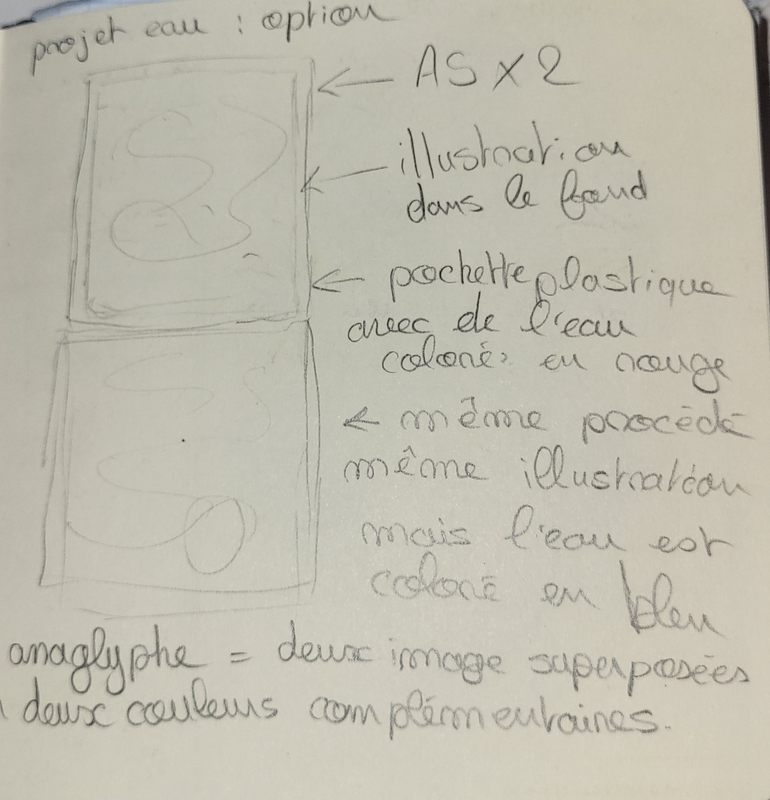 projet eau : option
A5 x 2
illustration
dans le fond
pochette plastique
avec de l'eau
coloré en rouge
même procédé
même illustration
mais l'eau est
coloré en bleu
anaglyphe = deux image superposées
deux couleurs complémentaires.